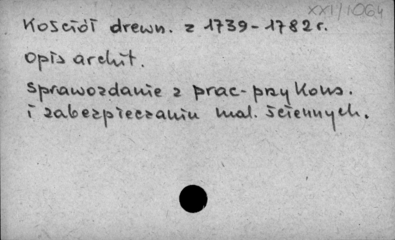 XXI/1064
Kościół drewn. z 1739-1782 r.
opis archit.
sprawozdanie z prac-przy kons.
i zabezpieczaniu mal. ściennych.